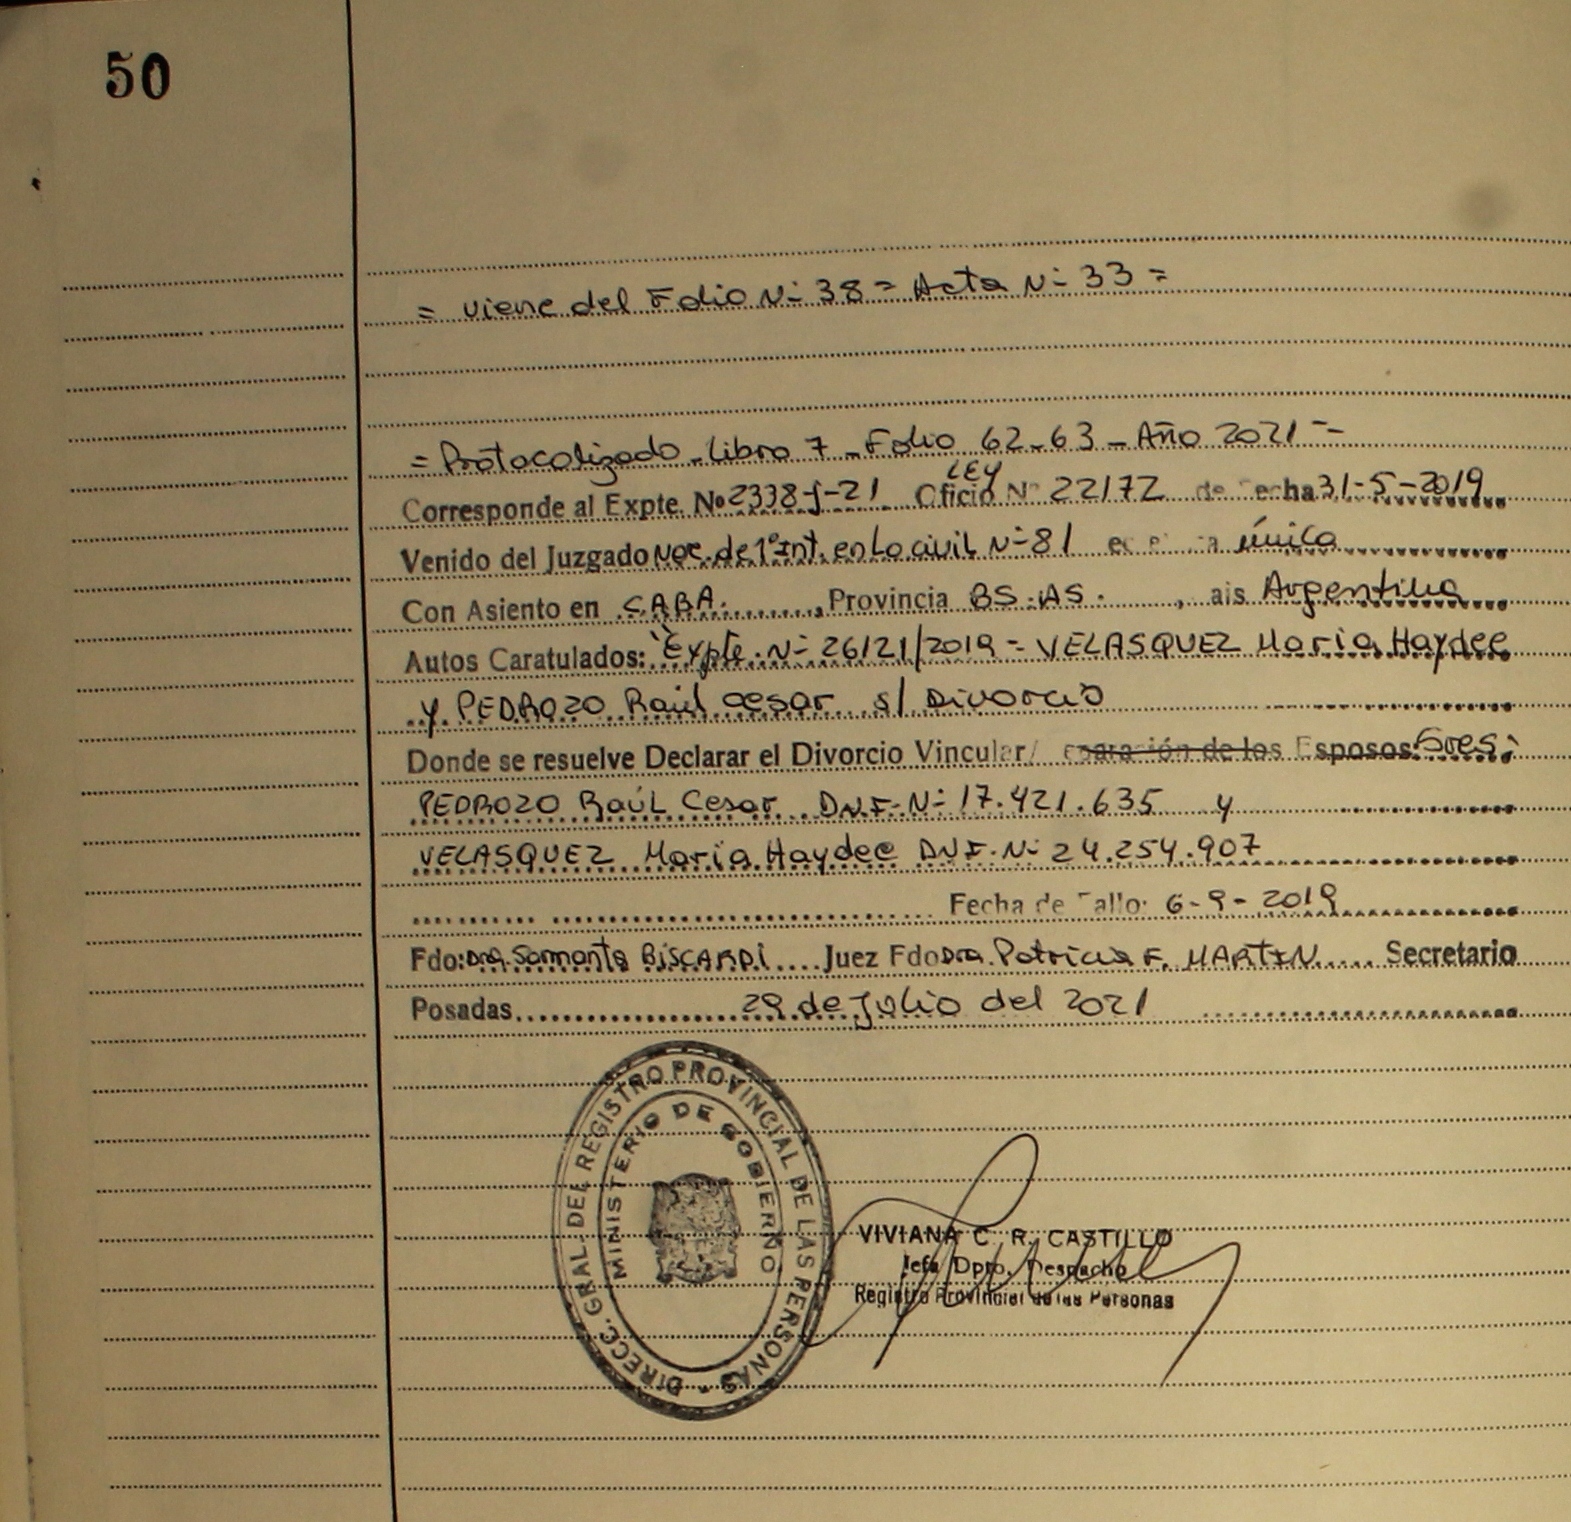 50
= Viene del Folio Nº 38 = Acta Nº 33 =
= Protocolizado - Libro 7 - Folio 62-63 - Año 2021 =
LEY
Corresponde al Expte. Nº 2338-J-21 Oficio Nº 22172 de Fecha 31-5-2019
Venido del Juzgado Nac. de 1º Int. en Lo civil Nº 81 única
Con Asiento en C.A.B.A. , Provincia BS.AS. , ais Argentina
Autos Caratulados: "Expte. Nº 26121/2019 - VELASQUEZ Maria Haydee
y PEDROZO Raúl Cesar s/ Divorcio
Donde se resuelve Declarar el Divorcio Vincular/ de los Esposos: Sres:
PEDROZO Raúl Cesar D.N.I. Nº 17.421.635 y
VELASQUEZ Maria Haydee D.N.I. Nº 24.254.907
Fecha de Fallo: 6-9-2019
Fdo: Dra. Samanta BiSCARDi Juez Fdo Dra. Patricia F. MARTIN Secretario
Posadas 29 de Julio del 2021
DIRECC. GRAL. DEL REGISTRO PROVINCIAL DE LAS PERSONAS -
MINISTERIO DE GOBIERNO
VIVIANA C. R. CASTILLO
Jefa Dpto. Despacho
Registro Provincial de las Personas